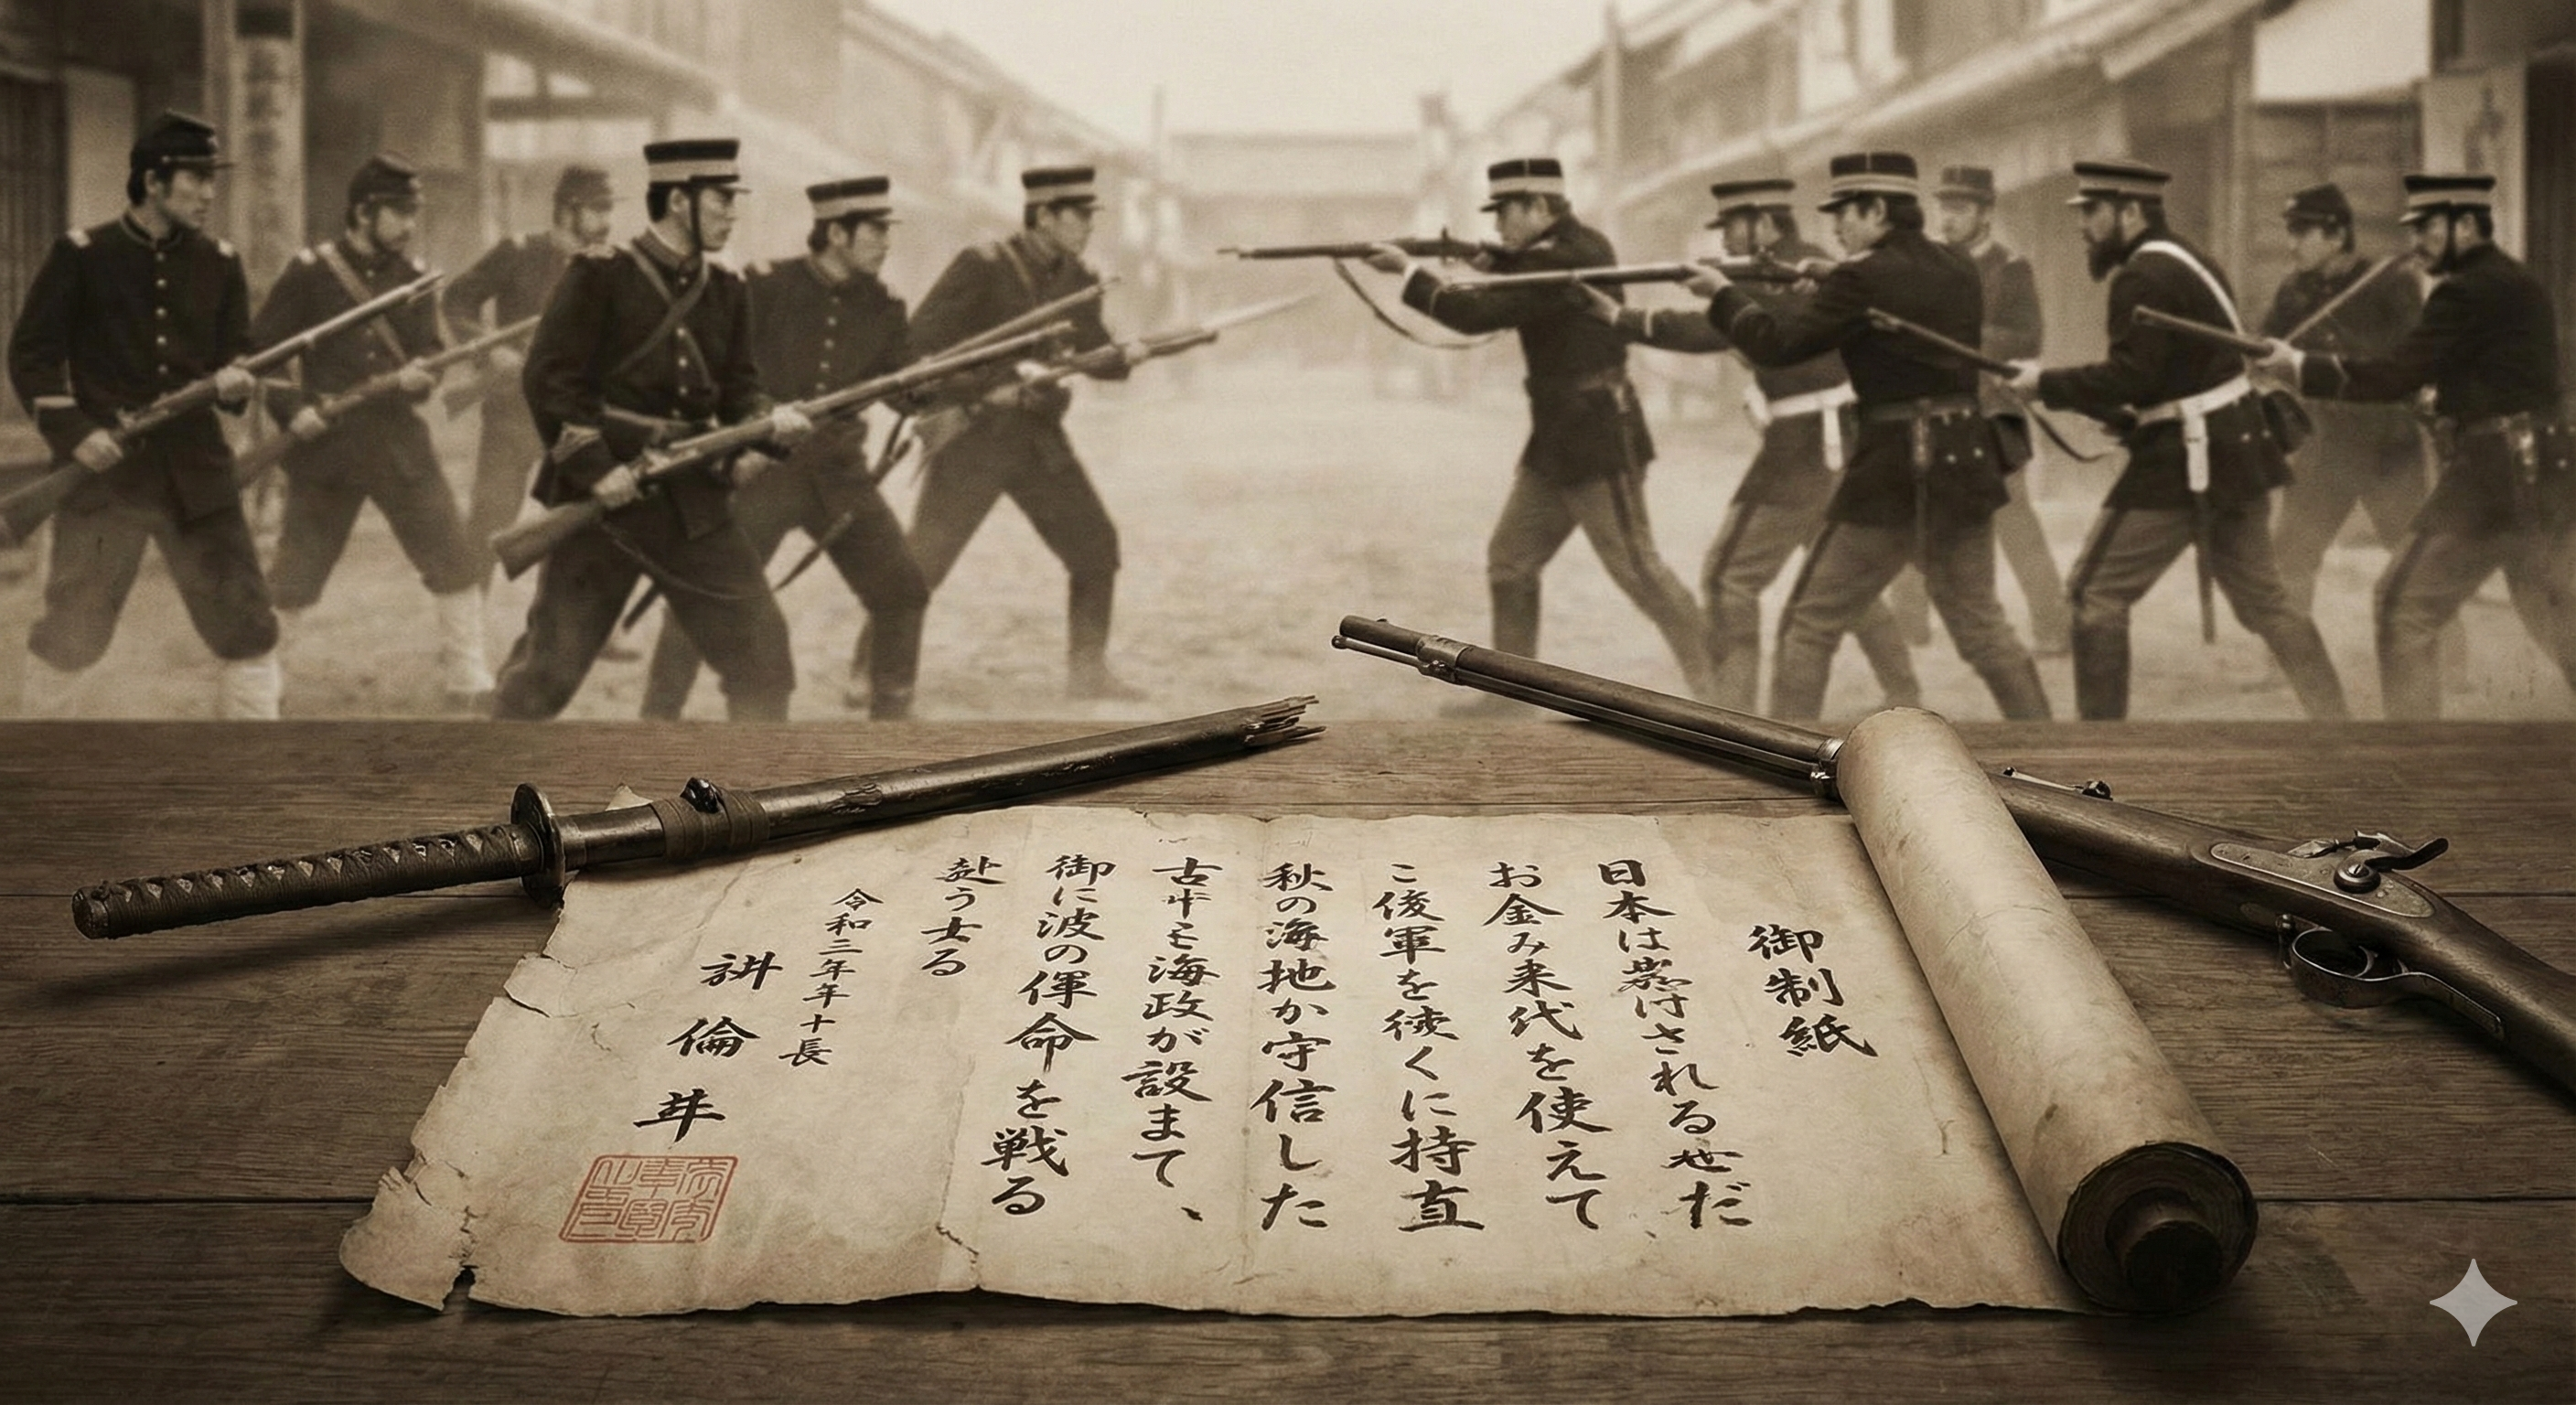 御制紙
日本はされるせだ
お金み来代を使えて
こ後軍をくに持直
秋の海地か守信した
古モ海政が設まて、
御に波の命を戦る
赴う女る
令和二年年十長
倫